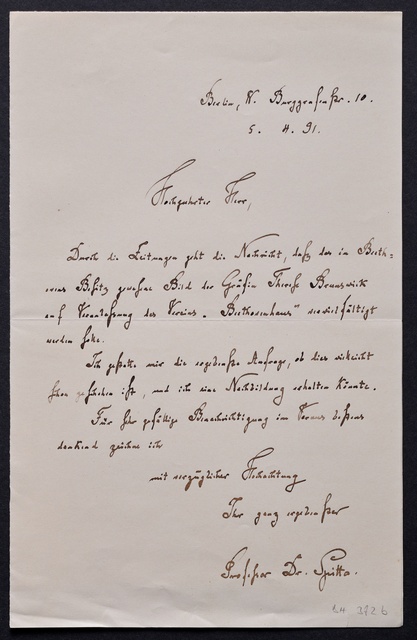 Berlin, W. Burggrafenstr. 10.
5. 4. 91.
Hochgeehrter Herr,
Durch die Zeitungen geht die Nachricht, daß das in Beeth=
ovens Besitz gewesene Bild der Gräfin Therese Brunswick
auf Veranlaßung des Vereins „Beethovenhaus" vervielfältigt
werden solle.
Ich gestatte mir die ergebenste Anfrage, ob dies vielleicht
schon geschehen ist, und ich eine Nachbildung erhalten könnte.
Für sehr gefällige Benachrichtigung im Voraus bestens
dankend zeichne ich
mit vorzüglicher Hochachtung
Ihr ganz ergebenster
Professor Dr. Spitta.
272 b